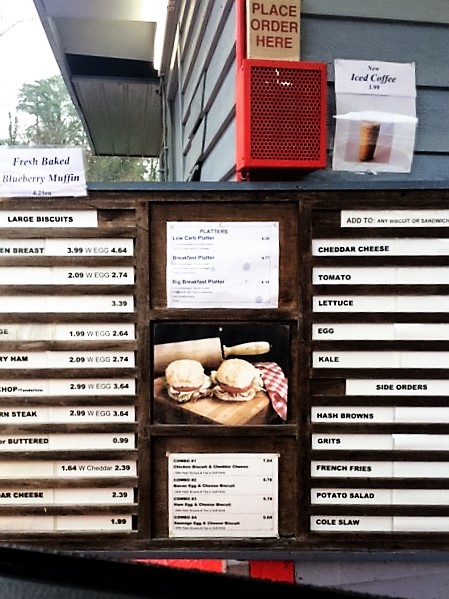 PLACE
ORDER
HERE
New
Iced Coffee
3.99
Fresh Baked
Blueberry Muffin
4.25ea
LARGE BISCUITS
EN BREAST 3.99 W EGG 4.64
2.09 W EGG 2.74
3.39
GE 1.99 W EGG 2.64
RY HAM 2.09 W EGG 2.74
CHOP-Tenderloin 2.99 W EGG 3.64
RN STEAK 2.99 W EGG 3.64
or BUTTERED 0.99
1.64 W Cheddar 2.39
DAR CHEESE 2.39
1.99
PLATTERS
Low Carb Platter
Breakfast Platter
Big Breakfast Platter
COMBO #1 7.04
Chicken Biscuit & Cheddar Cheese
COMBO #2 5.78
Bacon Egg & Cheese Biscuit
COMBO #3 5.78
Ham Egg & Cheese Biscuit
COMBO #4 5.68
Sausage Egg & Cheese Biscuit
ADD TO: ANY BISCUIT OR SANDWICH
CHEDDAR CHEESE
TOMATO
LETTUCE
EGG
KALE
SIDE ORDERS
HASH BROWNS
GRITS
FRENCH FRIES
POTATO SALAD
COLE SLAW